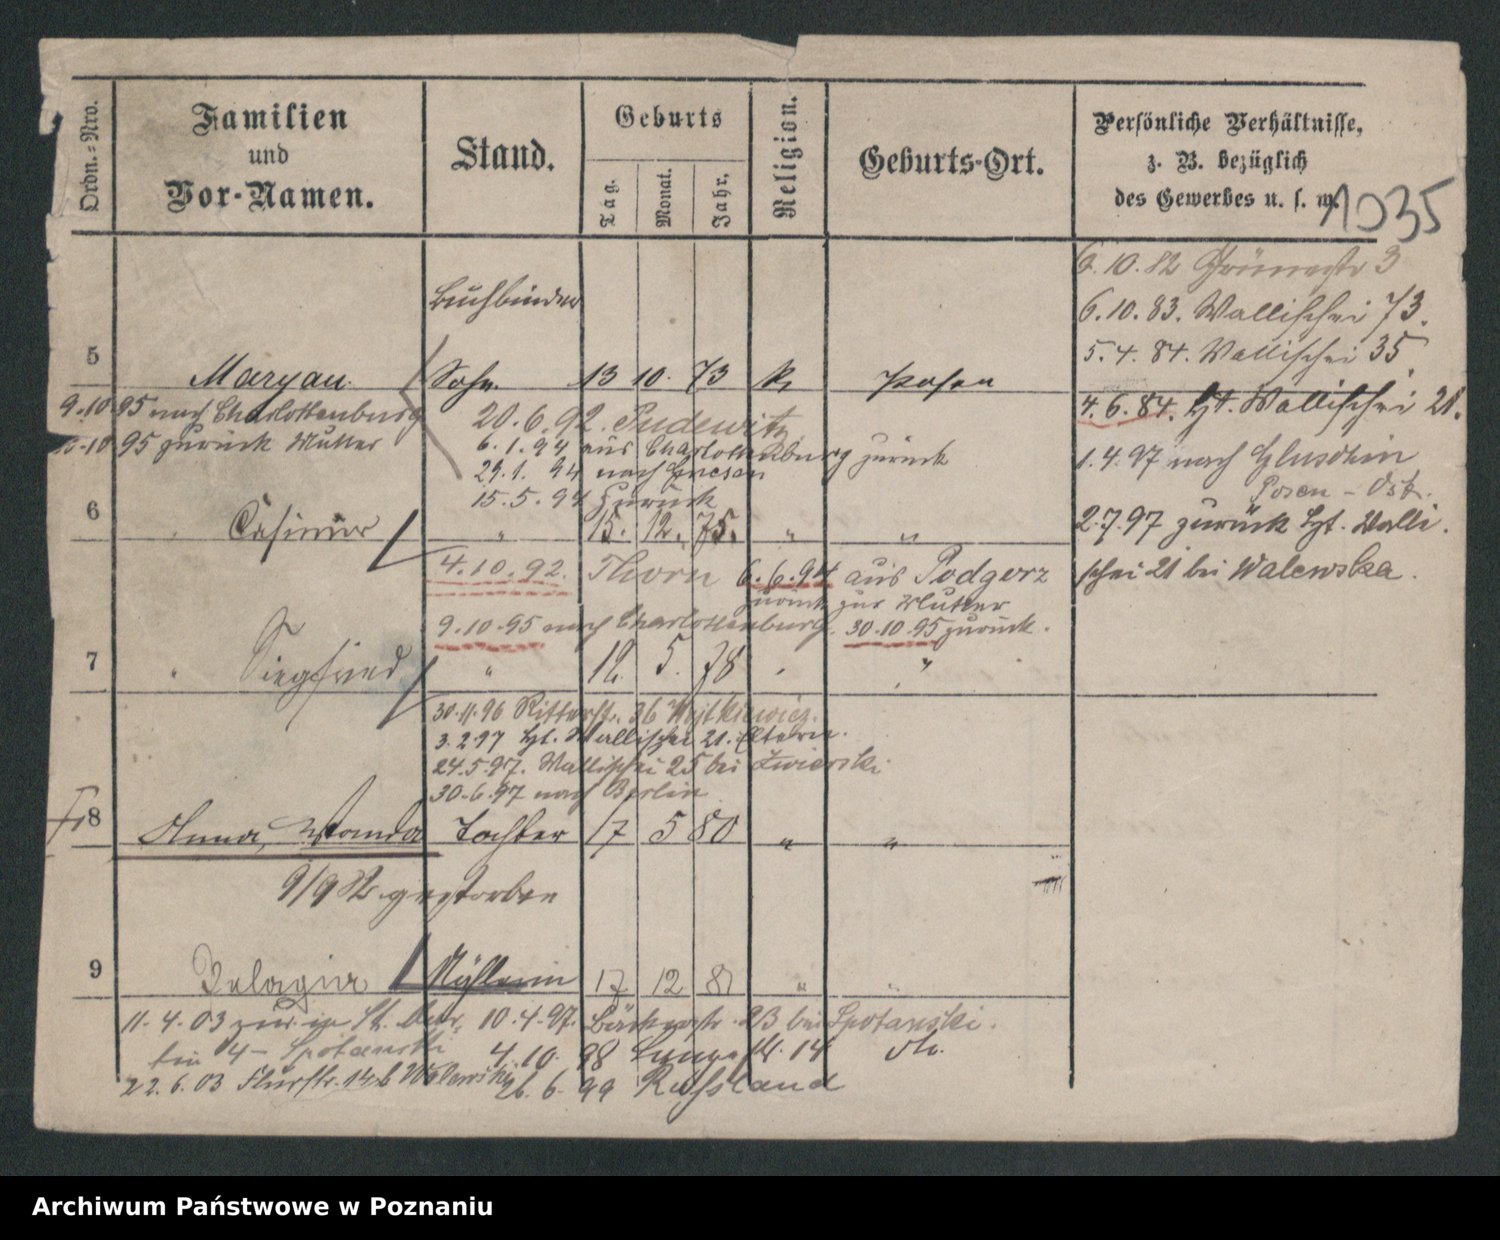 Ordn.-Nro.
Familien
und
Vor-Namen.
Stand.
Geburts
Tag.
Monat.
Jahr.
Religion.
Geburts-Ort.
Persönliche Verhältnisse,
z. B. bezüglich
des Gewerbes u. s. w.
1035
6.10.82 Grünestr 3
Buchbinder
6.10.83. Wallischei 73.
5.4.84. Wallischei 35
5 Maryan. Sohn 13 10. 73 k. Posen
4.6.84. Ht. Wallischei 21.
9.10.95 nach Charlottenburg
20.6.92. Pudewitz
95 zurück Mutter
6.1.94 aus Charlottenburg zurück
29.1.94 nach Gnesen
15.5.94 zurück
1.4.97 nach Gluschin
Posen - Ost.
6 Casimir " 15. 12. 75. " "
2.7.97 zurück Ht. Walli
schei 21 bei Walewska.
4.10.92. Thorn 6.6.94 aus Podgorz
zurück zur Mutter
9.10.95 nach Charlottenburg. 30.10.95 zurück.
7 " Siegfried " 12. 5. 78 " "
30.11.96 Ritterstr. 36 Wojtkiewicz.
3.2.97 Ht. Wallischei 21. Eltern.
24.5.97. Wallischei 25 bei Zwierski
30.6.97 nach Berlin
8 Anna, Wanda Tochter 17 5 80 " "
9/9 82 gestorben
9 Pelagia Nähterin 17 12 81 " "
11.4.03 zur. in St.
10.4.97. Bäckerstr. 23 bei Spotanski.
4 - Spotanski
4.10.98 Lange str. 14
22.6.03 Flurstr. 14 b Walewski
26.6.99 Russland
Archiwum Państwowe w Poznaniu